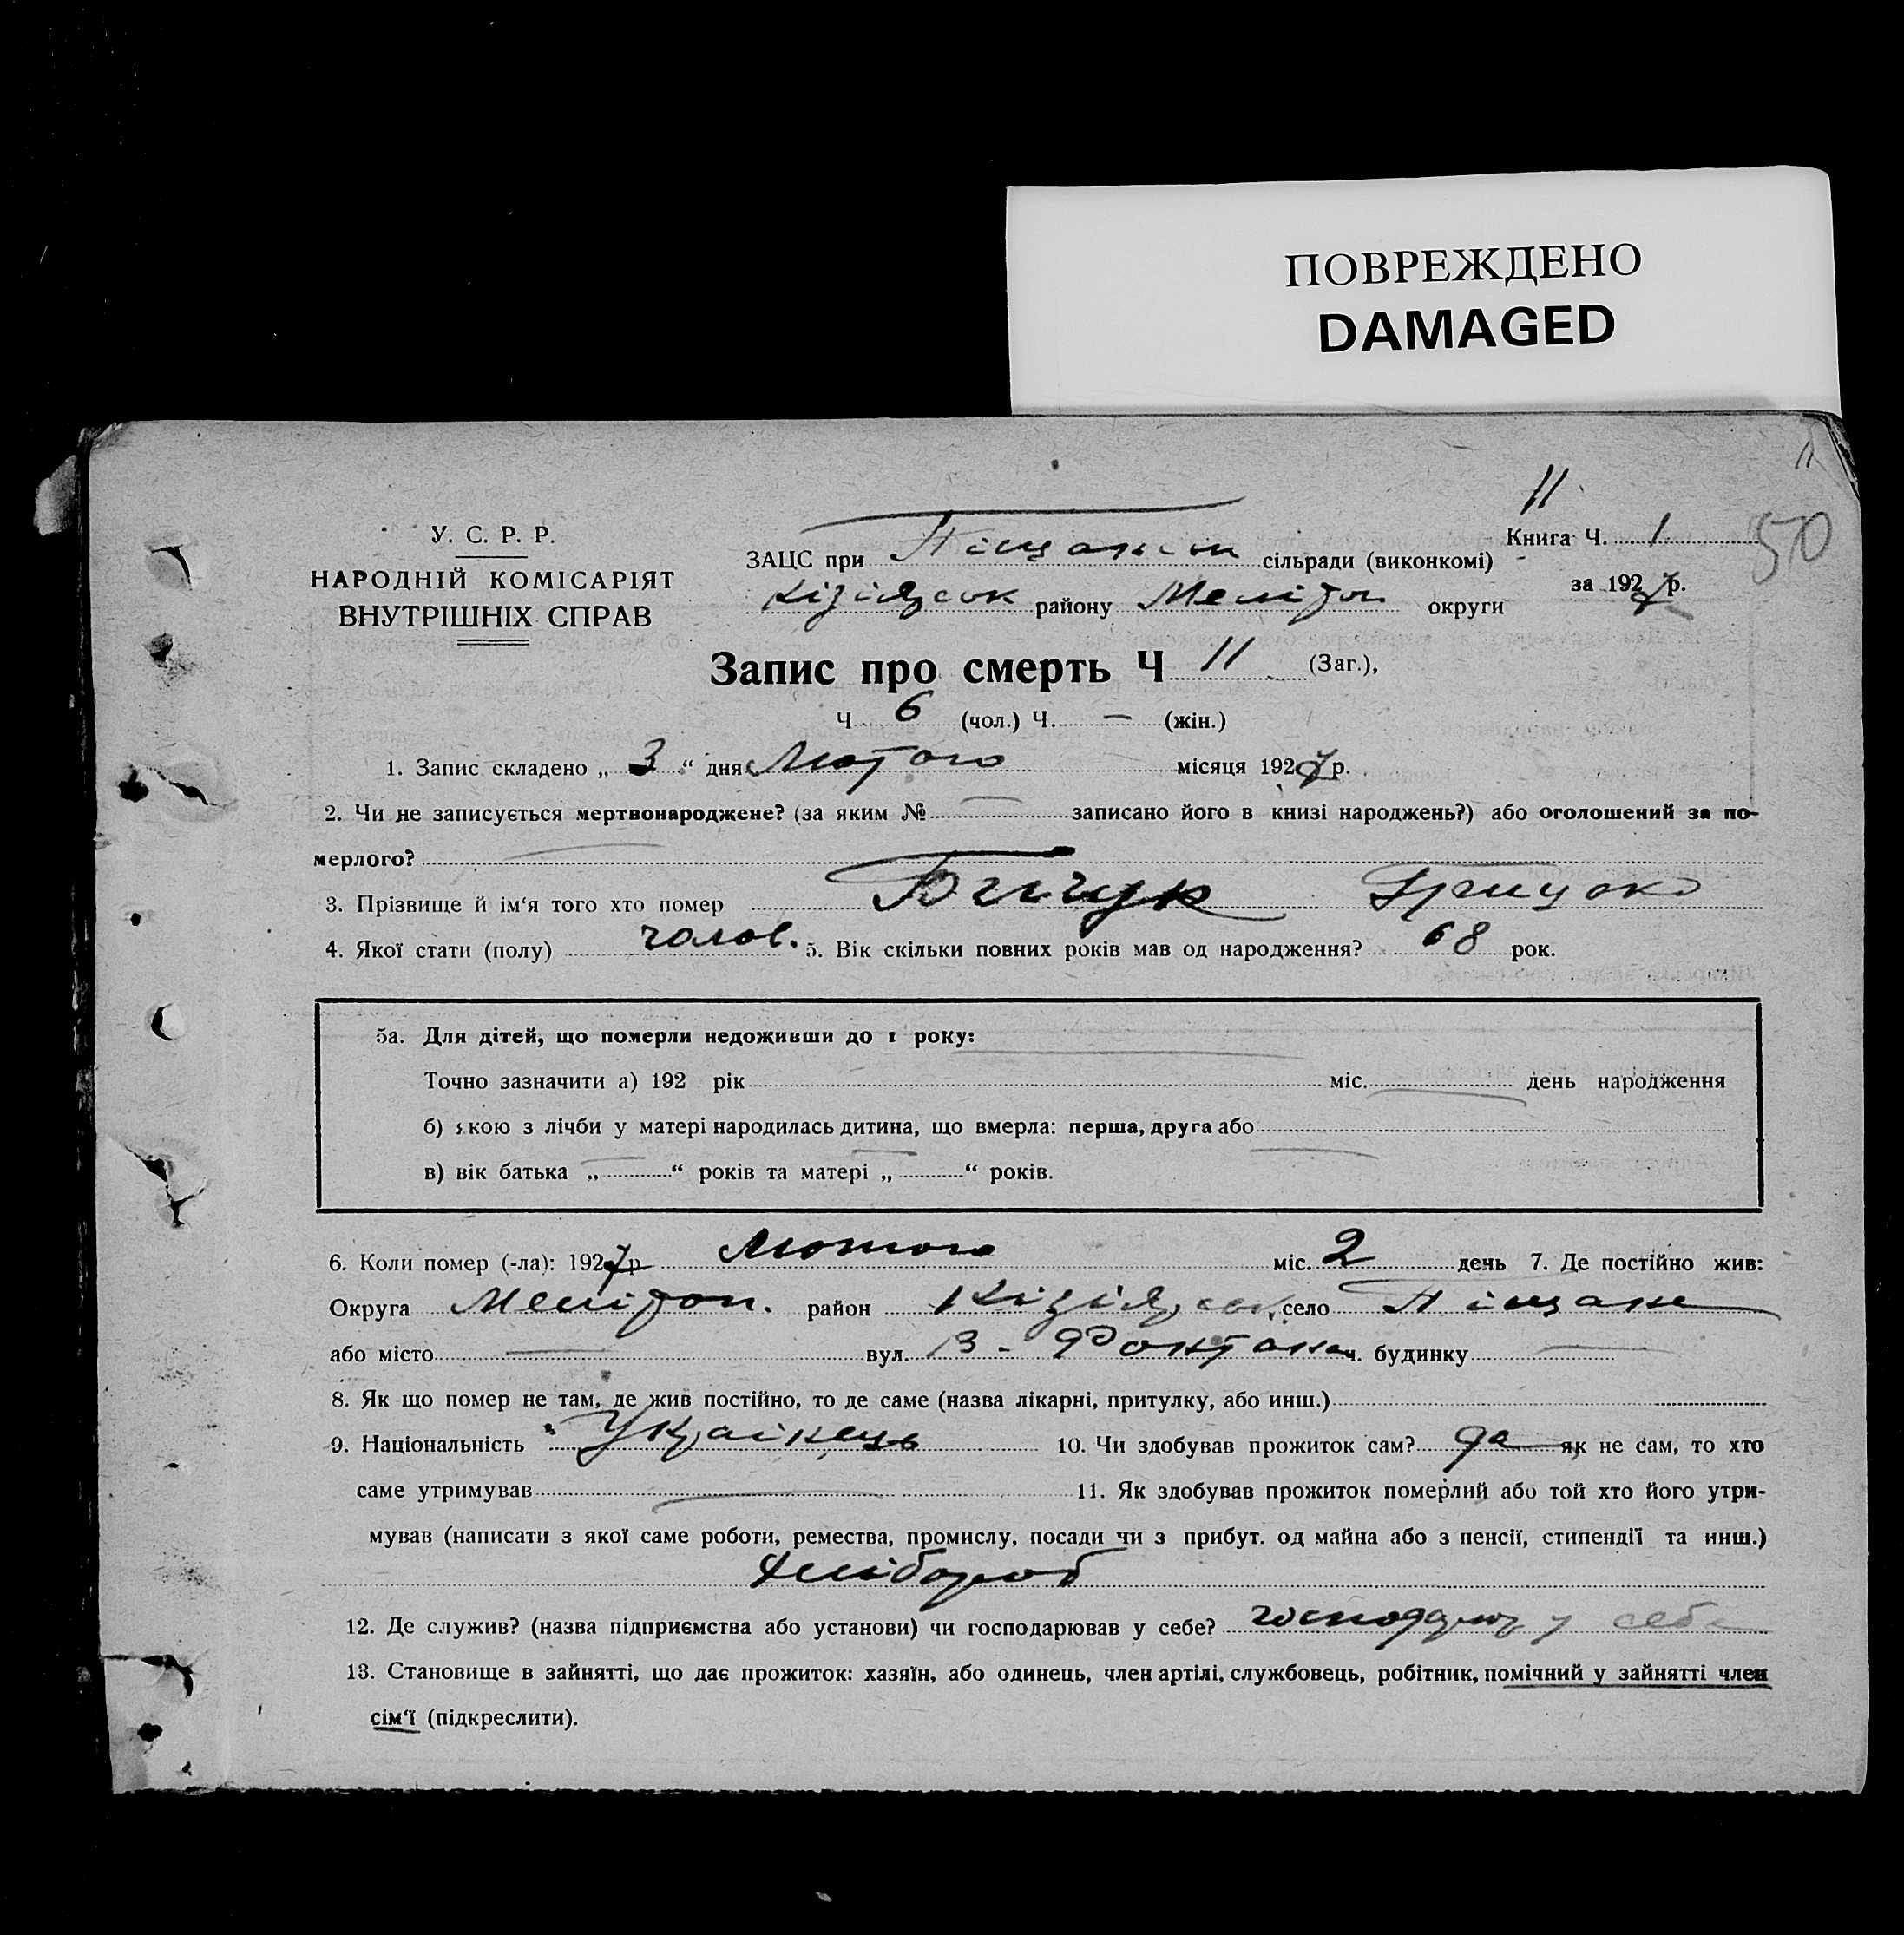 ПОВРЕЖДЕНО
DAMAGED
11
11
Книга Ч. 1
50
за 1927 р.
У. С. Р. Р.
НАРОДНІЙ КОМІСАРІЯТ
ВНУТРІШНІХ СПРАВ
ЗАЦС при Піщанськ сільради (виконкомі)
Кізіярськ району Мелітоп округи
Запис про смерть Ч 11 (Заг.),
Ч. 6 (чол.) Ч. — (жін.)
1. Запис складено „ 3 “ дня Лютого місяця 1927 р.
2. Чи не записується мертвонароджене? (за яким № — записано його в книзі народжень?) або оголошений за по-
мерлого? —
3. Прізвище й ім‘я того хто помер Грицько
4. Якої стати (полу) чолов. 5. Вік скільки повних років мав од народження? 68 рок.
5а. Для дітей, що померли недоживши до 1 року: —
Точно зазначити а) 192 рік міс. — день народження
б) якою з лічби у матері народилась дитина, що вмерла: перша, друга або —
в) вік батька „ — “ років та матері „ — “ років.
6. Коли помер (-ла): 1927 р. Лютого міс. 2 день 7. Де постійно жив:
Округа Мелітоп. район Кізіярськ, село Піщане
або місто — вул. В - Фонтана ч. будинку —
8. Як що помер не там, де жив постійно, то де саме (назва лікарні, притулку, або инш.)
9. Національність Українець 10. Чи здобував прожиток сам? да як не сам, то хто
саме утримував — 11. Як здобував прожиток померлий або той хто його утри-
мував (написати з якої саме роботи, ремества, промислу, посади чи з прибут. од майна або з пенсії, стипендії та инш.)
Хлібороб
12. Де служив? (назва підприємства або установи) чи господарював у себе? у себе
13. Становище в зайнятті, що дає прожиток: хазяїн, або одинець, член артілі, службовець, робітник, помічний у зайнятті член
сім‘ї (підкреслити).